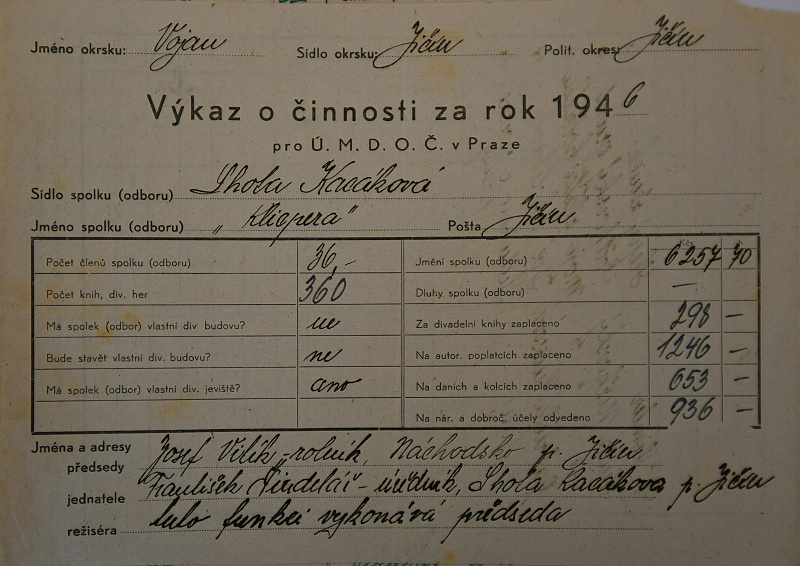 Jméno okrsku: Vojan Sídlo okrsku: Jičín Polit. okres: Jičín
Výkaz o činnosti za rok 1946
pro Ú. M. D. O. Č. v Praze
Sídlo spolku (odboru) Lhota Kacákova
Jméno spolku (odboru) „Klicpera" Pošta Jičín
Počet členů spolku (odboru) 36,- Jmění spolku (odboru) 6257 70
Počet knih, div. her 360 Dluhy spolku (odboru) —
Má spolek (odbor) vlastní div budovu? ne Za divadelní knihy zaplaceno 298 —
Bude stavět vlastní div. budovu? ne Na autor. poplatcích zaplaceno 1246 —
Má spolek (odbor) vlastní div. jeviště? ano Na daních a kolcích zaplaceno 653 —
Na nár. a dobroč, účely odvedeno 936 —
Jména a adresy
předsedy Josef Vilík - rolník, Náchodsko p. Jičín
jednatele František Šindelář - úředník, Lhota Kacákova p. Jičín
režiséra tuto funkci vykonává předseda